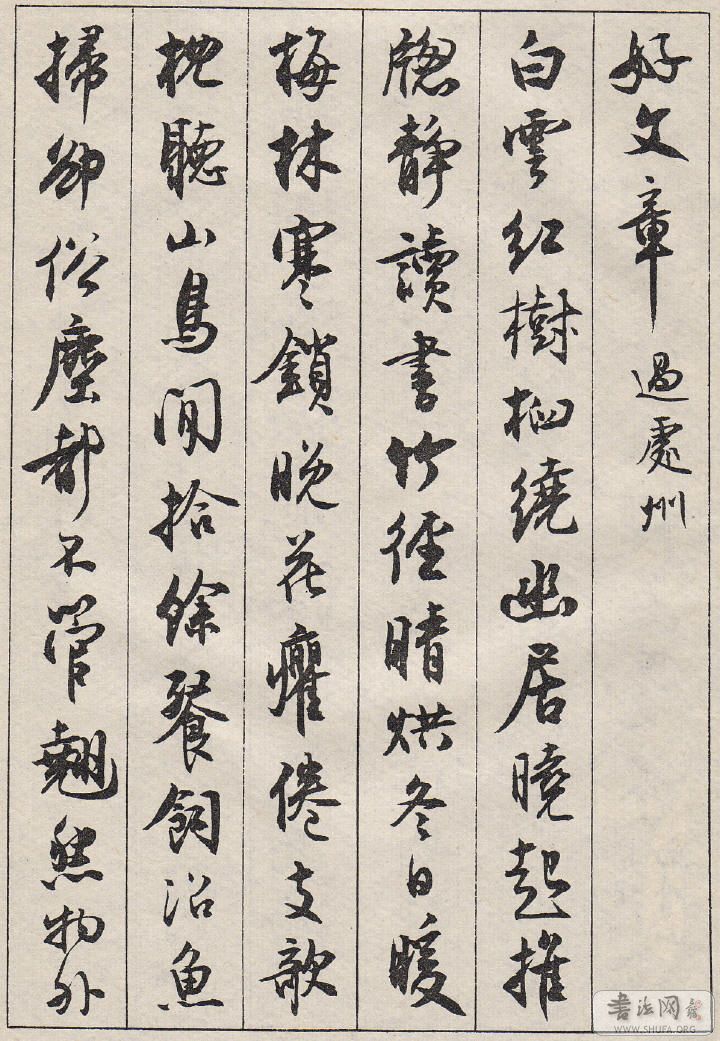 好文章 過處州
白雲紅樹相繞幽居曉起推
牕靜讀書竹徑晴烘冬日暖
梅林寒鎖晚花癯倦支欹
枕聽山鳥閒拾餘餐飼沼魚
掃卻俗塵都不管翹然物外
書法网
WWW.SHUFA.ORG